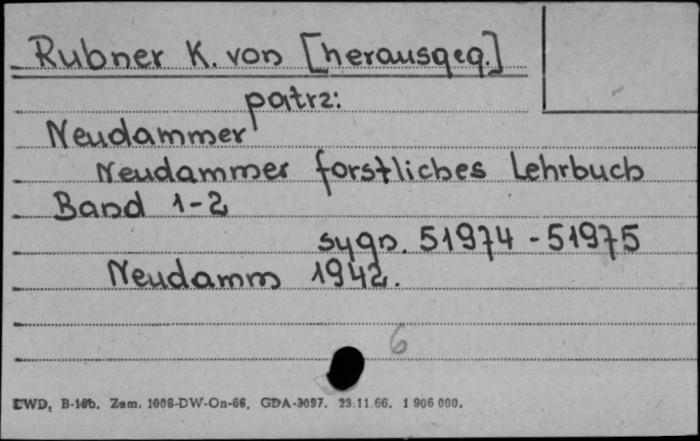 Rubner K. von [herausgeg.]
patrz:
Neudammer
Neudammer forstliches Lehrbuch
Band 1-2
sygn. 51974 - 51975
Neudamm 1942.
6
CWD, B-16b. Zam. 1008-DW-On-66. GDA-3097. 23.11.66. 1 906 000.